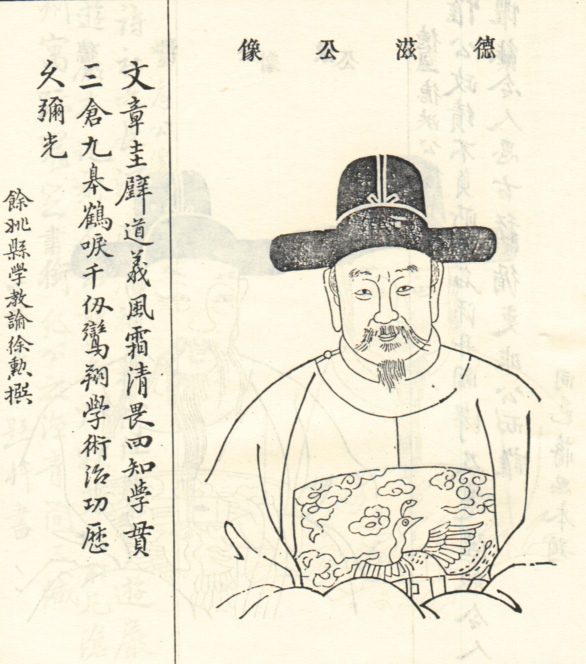 德滋公像
文章圭璧道義風霜清畏四知學貫
三倉九臯鶴唳千仞鸞翔學術治功歷
久彌光
餘姚縣學教諭徐勲撰